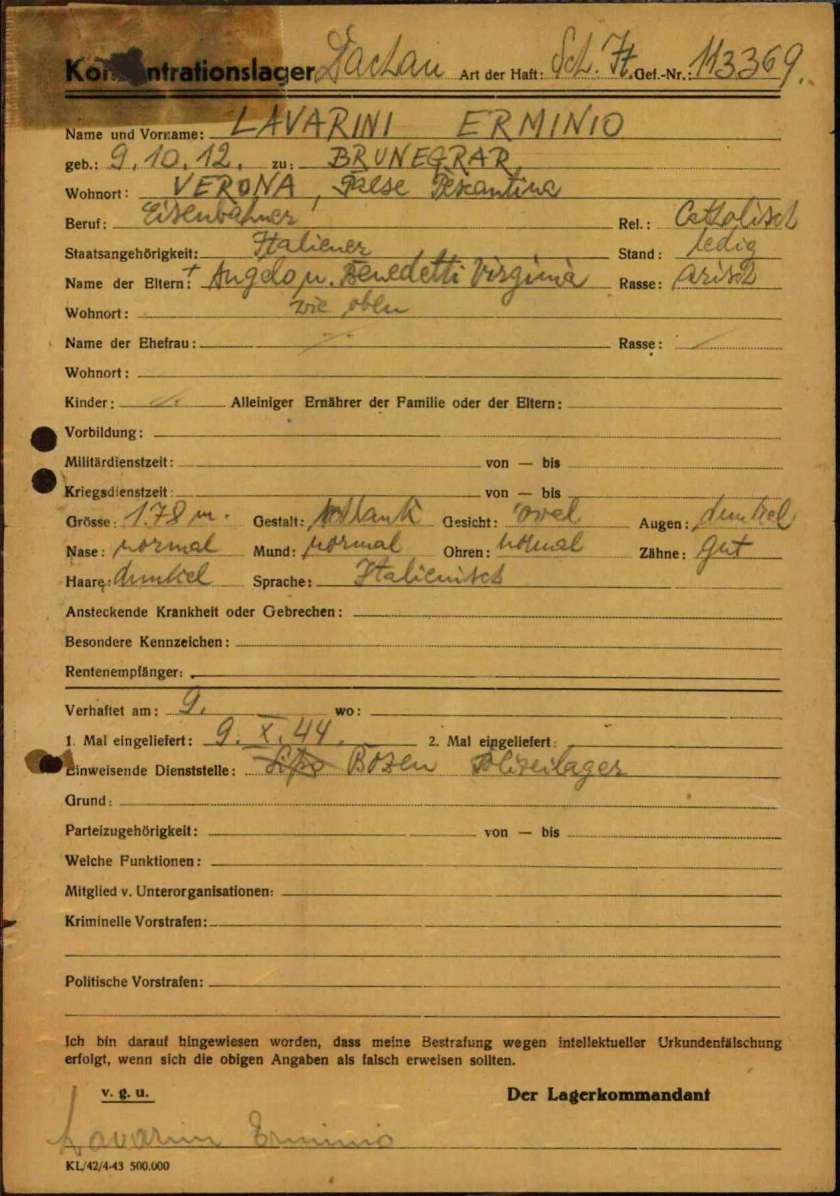 Konzentrationslager Dachau Art der Haft: Sch. It. Gef.-Nr.: 113369.
Name und Vorname: LAVARINI ERMINIO
geb.: 9.10.12. zu: BRUNEGRAR
Wohnort: VERONA, Paese Pescantina
Beruf: Eisenbahner Rel.: Catholisch
Staatsangehörigkeit: Italiener Stand: ledig
Name der Eltern: + Angelo u. Benedetti Virginia Rasse: arisch
Wohnort: wie oben
Name der Ehefrau: Rasse:
Wohnort:
Kinder: Alleiniger Ernährer der Familie oder der Eltern:
Vorbildung:
Militärdienstzeit: von — bis
Kriegsdienstzeit: von — bis
Grösse: 1.78 m. Gestalt: schlank Gesicht: oval Augen: dunkel
Nase: normal Mund: normal Ohren: normal Zähne: gut
Haare: dunkel Sprache: Italienisch
Ansteckende Krankheit oder Gebrechen:
Besondere Kennzeichen:
Rentenempfänger:
Verhaftet am: 9. wo:
1. Mal eingeliefert: 9. X. 44. 2. Mal eingeliefert:
Einweisende Dienststelle: Sipo Bozen Polizeilager
Grund:
Parteizugehörigkeit: von — bis
Welche Funktionen:
Mitglied v. Unterorganisationen:
Kriminelle Vorstrafen:
Politische Vorstrafen:
Ich bin darauf hingewiesen worden, dass meine Bestrafung wegen intellektueller Urkundenfälschung
erfolgt, wenn sich die obigen Angaben als falsch erweisen sollten.
v. g. u. Der Lagerkommandant
Lavarini Erminio
KL/42/4-43 500.000